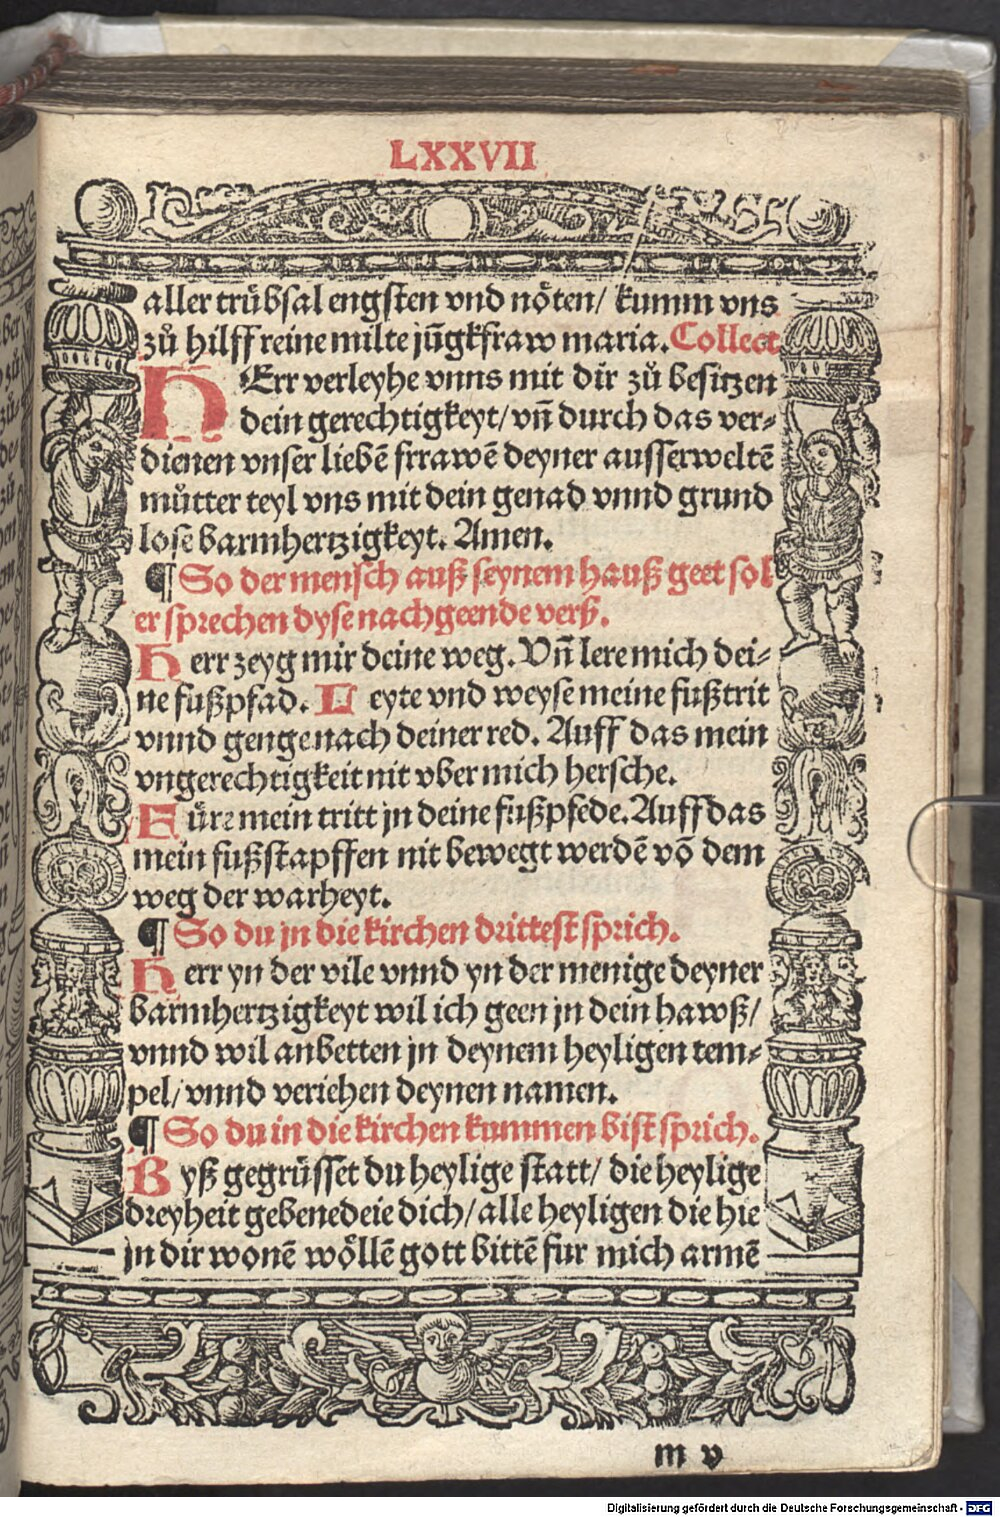 LXXVII
aller trübsal engsten vnd nöten/ kumm vns
zů hilff reine milte jũgkfraw maria. Collect
HErr verleyhe vnns mit dir zů besitzen
dein gerechtigkeyt/ vñ durch das ver-
dienen vnser liebẽ frrawẽ deyner ausserweltẽ
můtter teyl vns mit dein genad vnnd grund
lose barmhertzigkeyt. Amen.
¶ So der mensch auß seynem hauß geet sol
er sprechen dyse nachgeende verß.
Herr zeyg mir deine weg. Vñ lere mich dei-
ne fußpfad. Leyte vnd weyse meine fußtrit
vnnd genge nach deiner red. Auff das mein
vngerechtigkeit nit vber mich hersche.
Fůre mein tritt jn deine fußpfede. Auff das
mein fußstapffen nit bewegt werdẽ võ dem
weg der warheyt.
¶ So du jn die kirchen drittest sprich.
Herr yn der vile vnnd yn der menige deyner
barmhertzigkeyt wil ich geen jn dein hawß/
vnnd wil anbetten jn deynem heyligen tem-
pel/ vnnd veriehen deynen namen.
¶ So du in die kirchen kummen bist sprich.
Byß gegrüsset du heylige statt/ die heylige
dreyheit gebenedeie dich/ alle heyligen die hie
jn dir wonẽ wöllẽ gott bittẽ fur mich armẽ
m v
Digitalisierung gefördert durch die Deutsche Forschungsgemeinschaft - DFG